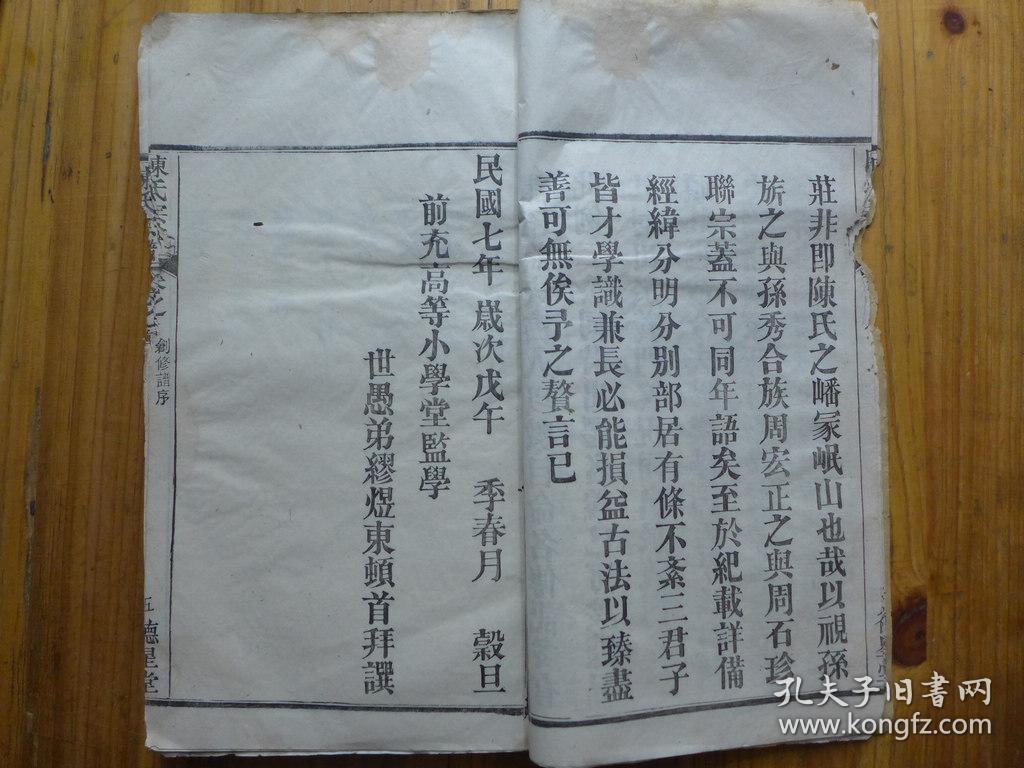 莊非即陳氏之嶓冢岷山也哉以視孫
旂之與孫秀合族周宏正之與周石珍
聯宗蓋不可同年語矣至於紀載詳備
經緯分明分別部居有條不紊三君子
皆才學識兼長必能損益古法以臻盡
善可無俟予之贅言已
民國七年歲次戊午 季春月 穀旦
前充高等小學堂監學
世愚弟繆煜東頓首拜譔
陳氏宗譜卷之
創修譜序
五 德星堂
孔夫子旧书网
www.kongfz.com